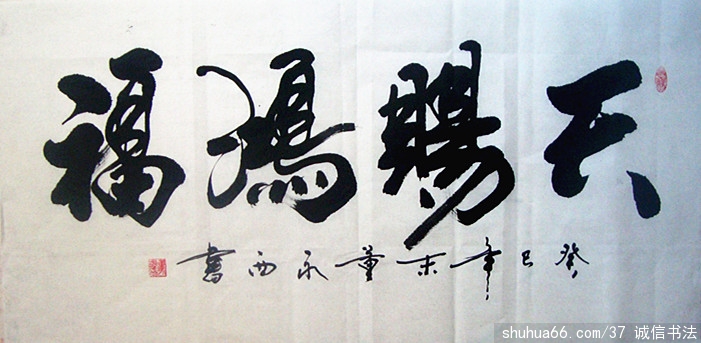 天赐鸿福
癸巳年末董永西書
shuhua66.com/37 诚信书法